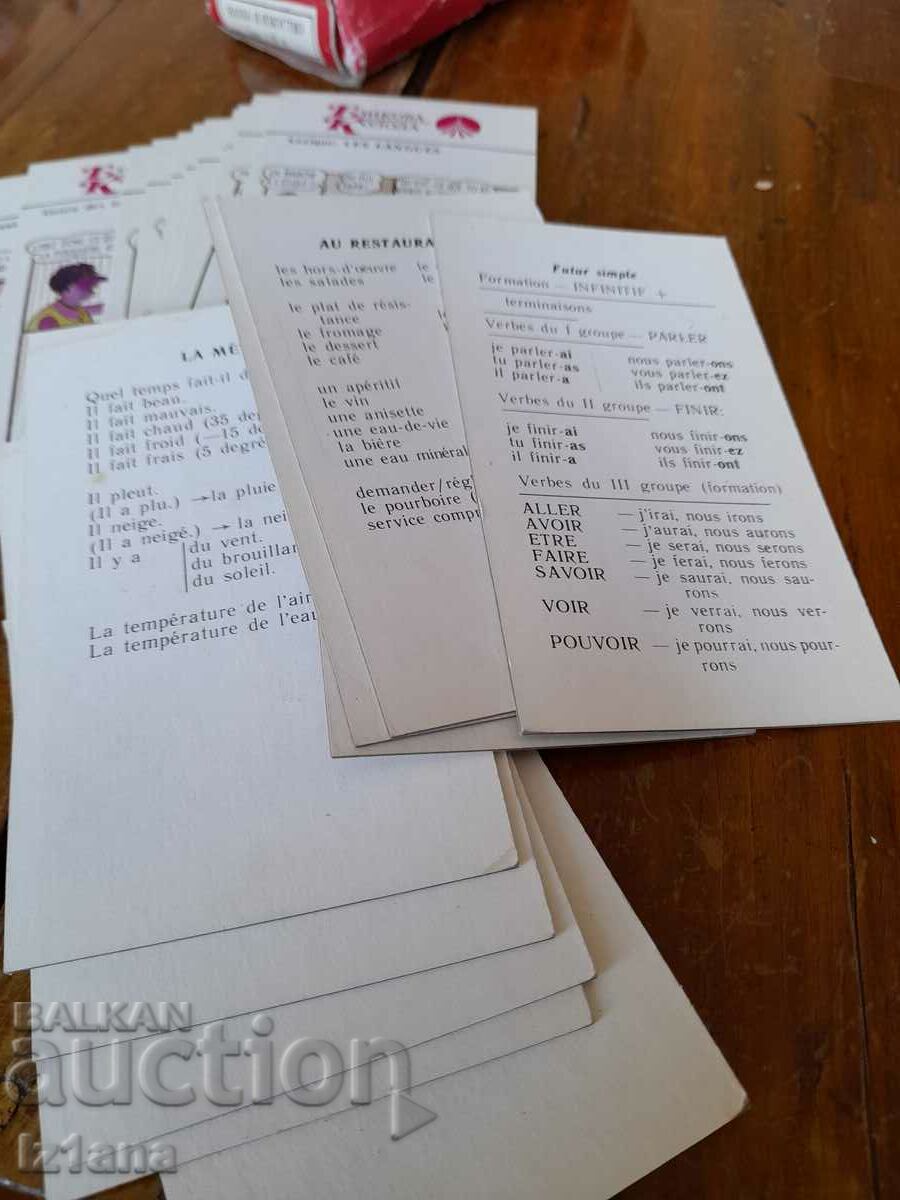 LES LANGUES
AU RESTAURA
les hors-d'œuvre le
les salades le
le plat de résis-
tance
le fromage
le dessert
le café
un apéritif
le vin
une anisette
une eau-de-vie
la bière
une eau minéral
demander/rég
le pourboire (
service compr
Futur simple
Formation — INFINITIF +
terminaisons
Verbes du I groupe — PARLER
je parler-ai nous parler-ons
tu parler-as vous parler-ez
il parler-a ils parler-ont
Verbes du II groupe — FINIR:
je finir-ai nous finir-ons
tu finir-as vous finir-ez
il finir-a ils finir-ont
Verbes du III groupe (formation)
ALLER — j'irai, nous irons
AVOIR — j'aurai, nous aurons
ETRE — je serai, nous serons
FAIRE — je ferai, nous ferons
SAVOIR — je saurai, nous sau-
rons
VOIR — je verrai, nous ver-
rons
POUVOIR — je pourrai, nous pour-
rons
LA MÉ
Quel temps fait-il d
Il fait beau.
Il fait mauvais.
Il fait chaud (35 deg
Il fait froid (—15 de
Il fait frais (5 degré
Il pleut.
(Il a plu.) → la pluie
Il neige.
(Il a neigé.) → la nei
Il y a du vent.
du brouillar
du soleil.
La température de l'air
La température de l'eau
BALKAN
auction
Iz1ana